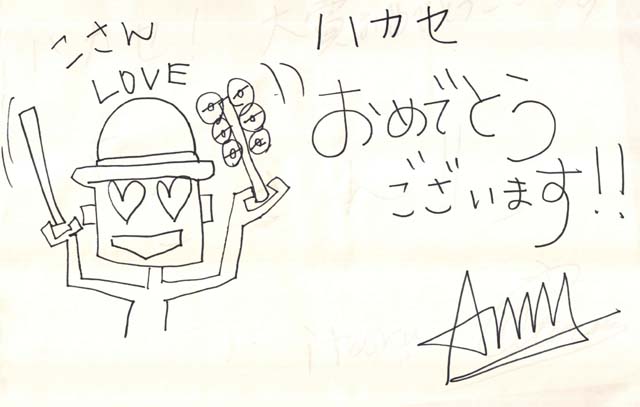 こさん
LOVE
ハカセ
おめでとう
ございます!!